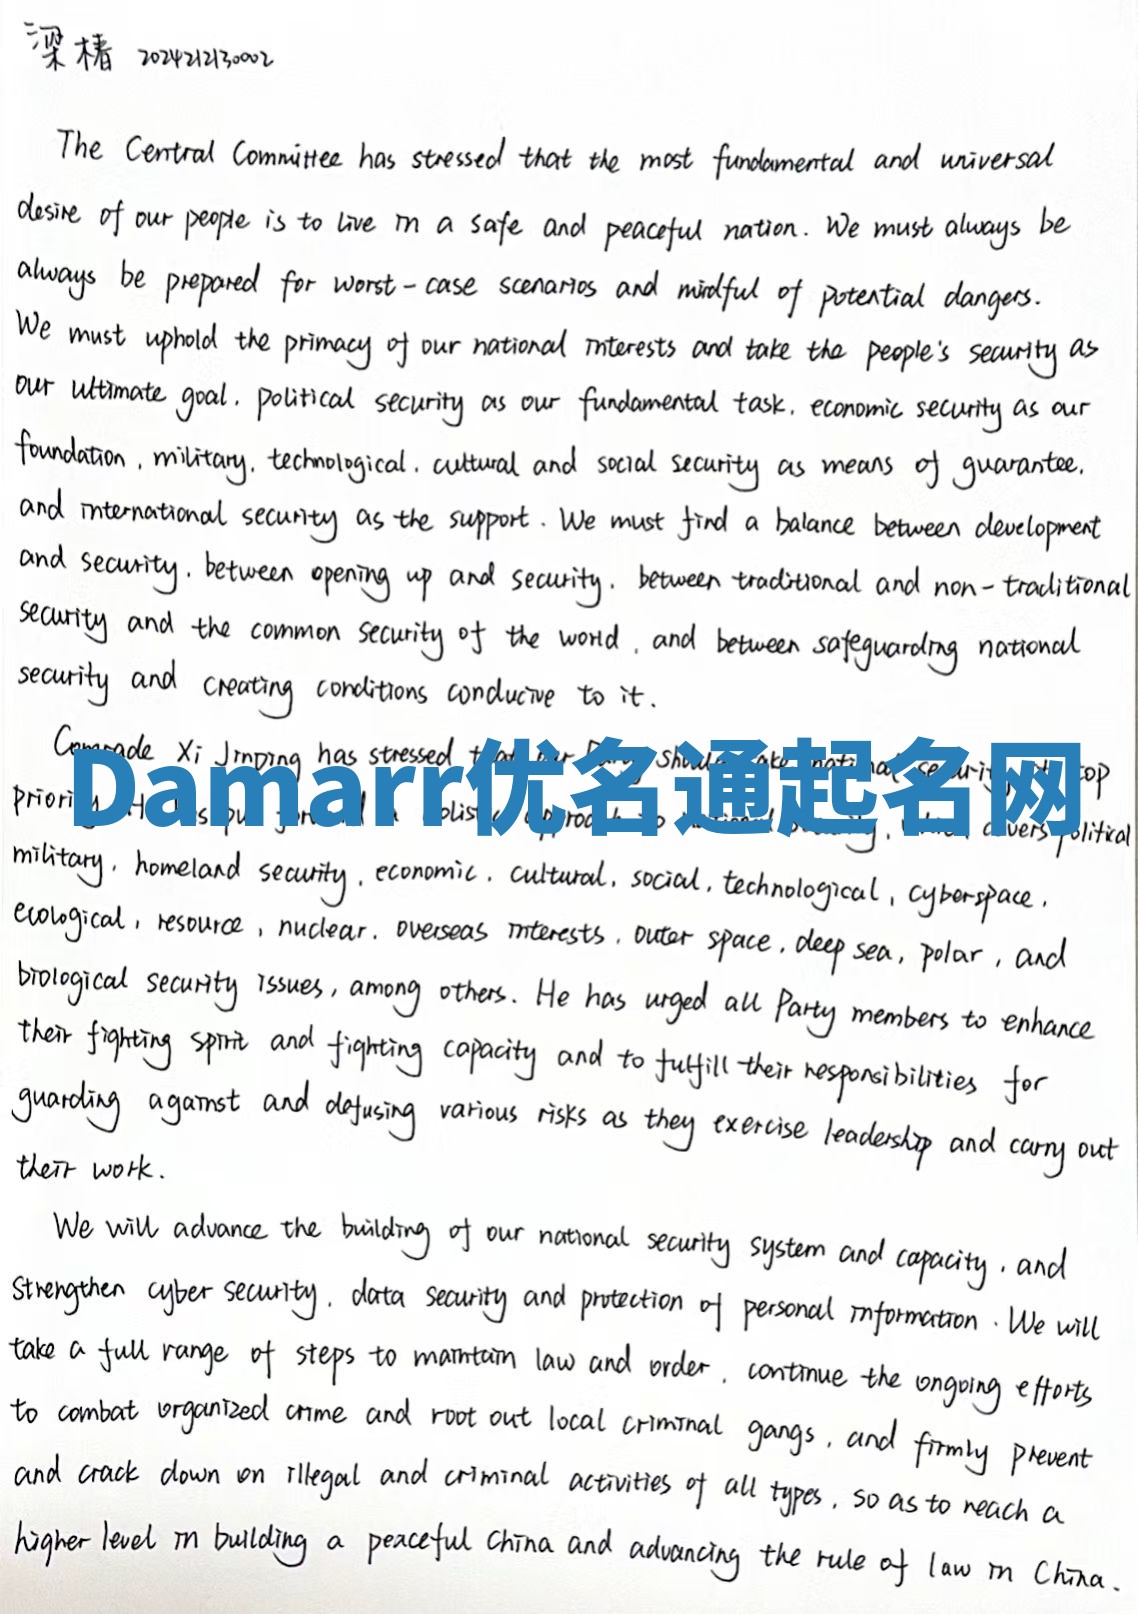 梁椿 2024212130002
The Central Committee has stressed that the most fundamental and universal
desire of our people is to live in a safe and peaceful nation. We must always be
always be prepared for worst-case scenarios and mindful of potential dangers.
We must uphold the primacy of our national interests and take the people's security as
our ultimate goal, political security as our fundamental task, economic security as our
foundation, military, technological, cultural and social security as means of guarantee,
and international security as the support. We must find a balance between development
and security, between opening up and security, between traditional and non-traditional
security and the common security of the world, and between safeguarding national
security and creating conditions conducive to it.
Comrade Xi Jinping has stressed should top
Damarr优名通起名网
political
military, homeland security, economic, cultural, social, technological, cyberspace,
ecological, resource, nuclear, overseas interests, outer space, deep sea, polar, and
biological security issues, among others. He has urged all Party members to enhance
their fighting spirit and fighting capacity and to fulfill their responsibilities for
guarding against and defusing various risks as they exercise leadership and carry out
their work.
We will advance the building of our national security system and capacity, and
strengthen cyber security, data security and protection of personal information. We will
take a full range of steps to maintain law and order, continue the ongoing efforts
to combat organized crime and root out local criminal gangs, and firmly prevent
and crack down on illegal and criminal activities of all types, so as to reach a
higher level in building a peaceful China and advancing the rule of law in China.